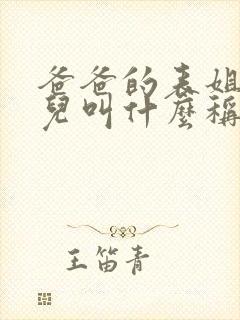 爸爸的表姐
兒叫什麼稱
王笛青